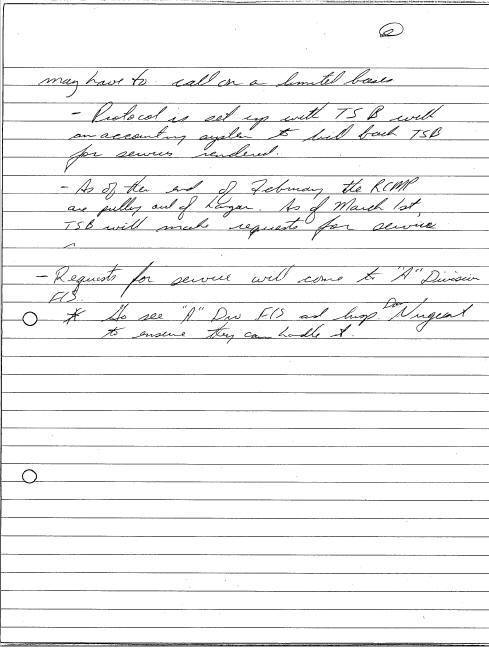 2
may have to call on a limited bases
- Protocol is set up with TSB with
an accounting system to bill back TSB
for services rendered.
- As of the end of February the RCMP
are pulling out of hangar. As of March 1st,
TSB will make requests for service
^
- Requests for service will come to "A" Division
FIS.
* Go see "A" Div FIS and Insp. Don Nugent
to ensure they can handle it.